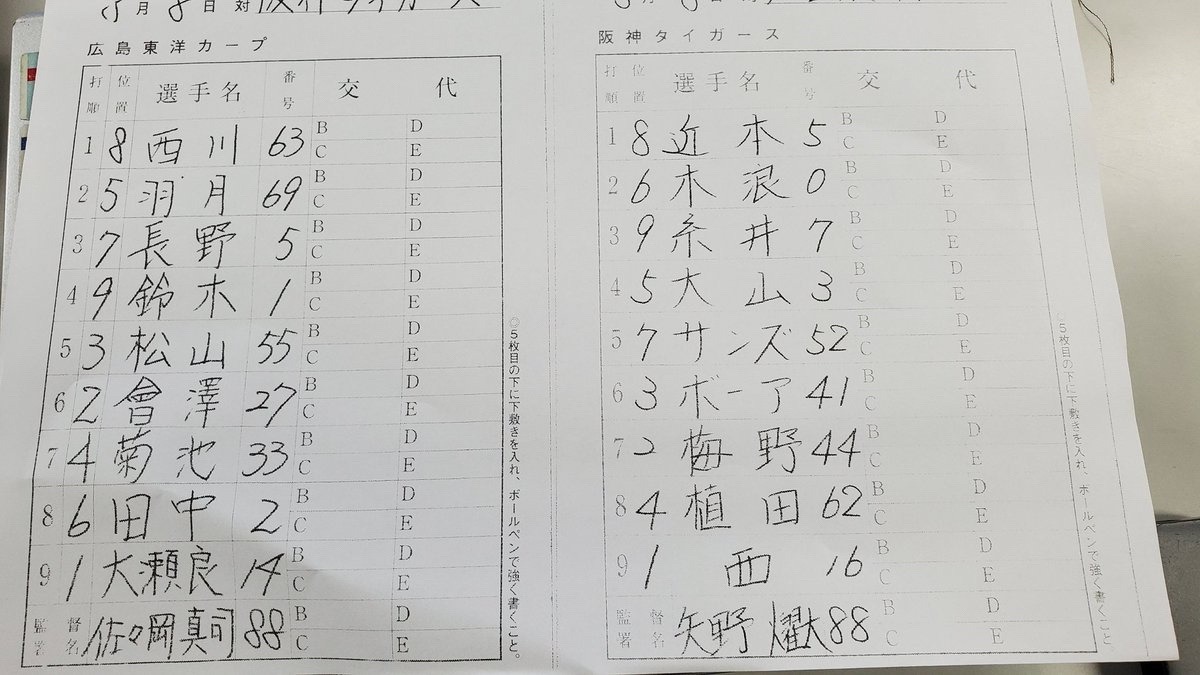 8月8日対阪神タイガース
広島東洋カープ
打順 位置 選手名 番号 交代
1 8 西川 63 B C D E
2 5 羽月 69 B C D E
3 7 長野 5 B C D E
4 9 鈴木 1 B C D E
5 3 松山 55 B C D E
6 2 會澤 27 B C D E
7 4 菊池 33 B C D E
8 6 田中 2 B C D E
9 1 大瀬良 14 B C D E
監督署名 佐々岡真司 88 B C D E
◎5枚目の下に下敷きを入れ、ボールペンで強く書くこと。
阪神タイガース
打順 位置 選手名 番号 交代
1 8 近本 5 B C D E
2 6 木浪 0 B C D E
3 9 糸井 7 B C D E
4 5 大山 3 B C D E
5 7 サンズ 52 B C D E
6 3 ボーア 41 B C D E
7 2 梅野 44 B C D E
8 4 植田 62 B C D E
9 1 西 16 B C D E
監督署名 矢野燿大 88 B C D E
◎5枚目の下に下敷きを入れ、ボールペンで強く書くこと。